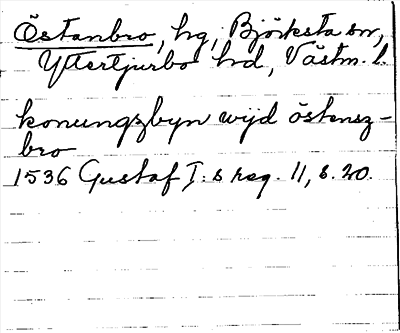 Östanbro, hg, Björksta sn,
Yttertjurbo hd, Västm. l.
konungzbyn wijd östensz-
bro
1536 Gustaf I:s reg. 11, s. 20.